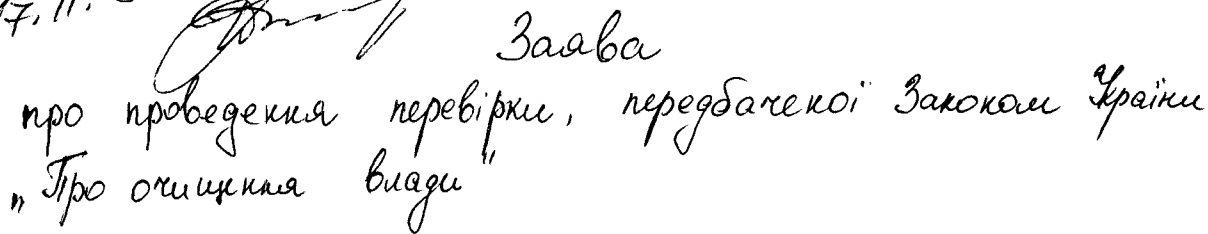 17.11.
Заява
про проведення перевірки, передбаченої Законом України
„Про очищення влади"